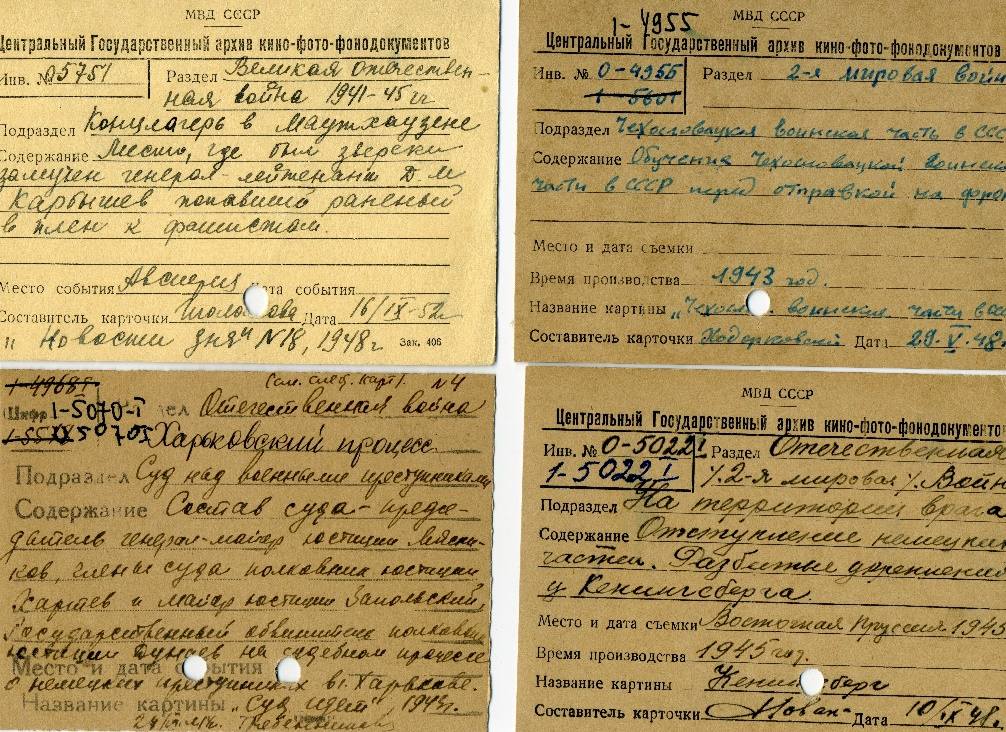 МВД СССР
Центральный Государственный архив кино-фото-фонодокументов
Инв. № 05751 Раздел Великая отечествен-
ная война 1941-45 гг
Подраздел Концлагерь в Маутхаузене
Содержание Место, где был зверски
замучен генерал-лейтенант Д М
Карбышев попавший раненый
в плен к фашистам.
Место события Австрия Дата события
Составитель карточки Дата 16/IX-52
"Новости дня" N18, 1948г Зак. 406
МВД СССР
1-4955
Центральный Государственный архив кино-фото-фонодокументов
Инв. № 0-4955 Раздел 2-я мировая войн
1-5601
Подраздел Чехословацкая воинская часть в ССС
Содержание Обучение Чехословацкой воинско
части в СССР перед отправкой на фрон
Место и дата съемки
Время производства 1943 год.
Название картины „Чехосл. воинская часть в
Составитель карточки Ходорковский Дата 29.V.48
1-49681 См. след. карт. N4
Шифр 1-5070-I дел Отечественная война
5070I Харьковский процесс.
Подраздел Суд над военными преступниками
Содержание Состав суда - предсе-
датель генерал-майор юстиции Мясни-
ков, члены суда полковник юстиции
Харчев и майор юстиции Запольский,
Государственный обвинитель полковник
юстиции Дунаев на судебном процессе
Место и дата события
о немецких преступниках в г. Харькове.
Название картины „Суд идет", 1943г.
МВД СССР
Центральный Государственный архив кино-фото-фонодокументо
Инв. № 0-5022 I Раздел Отечественная
1-5022 I /2-я мировая/. Войн
Подраздел На территории врага
Содержание Отступление немецких
частей. Разбитые укрепления
у Кенингсберга
Место и дата съемки Восточная Пруссия 1945
Время производства 1945 год.
Название картины Кенингсберг
Составитель карточки Дата 10/IX 48г.